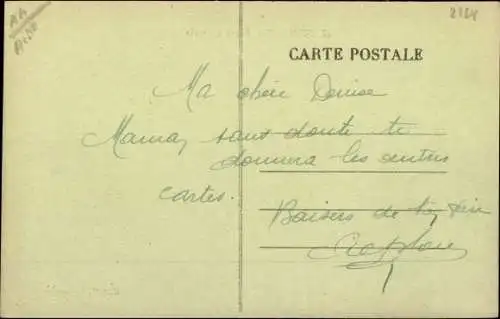 2164
CARTE POSTALE
Ma chère Denise
Maman sans doute te
donnera les autres
cartes.
Baisers de